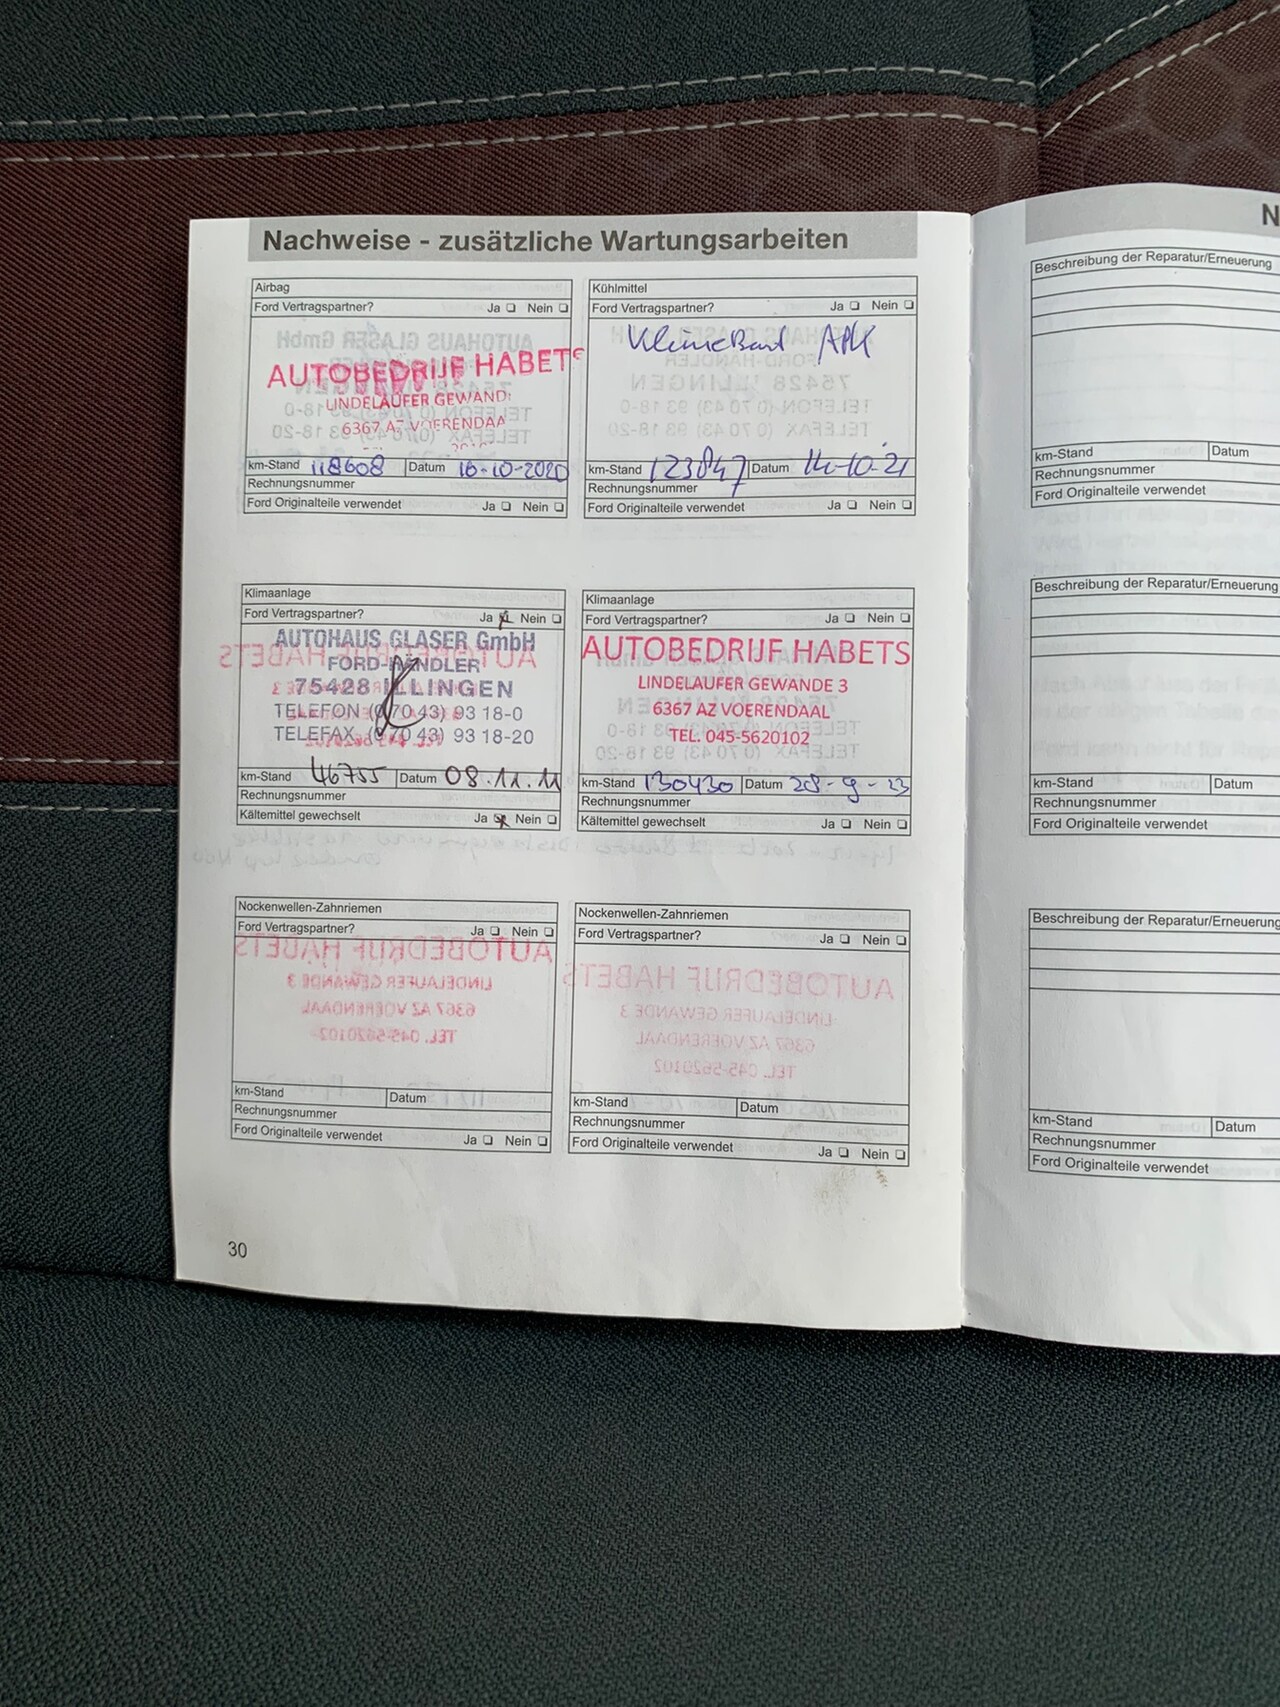 Nachweise - zusätzliche Wartungsarbeiten
Airbag
Ford Vertragspartner? Ja ❑ Nein ❑
AUTOBEDRIJF HABETS
LINDELAUFER GEWAND
6367 AZ VOERENDAA
km-Stand 118608 Datum 16-10-2020
Rechnungsnummer
Ford Originalteile verwendet Ja ❑ Nein ❑
Kühlmittel
Ford Vertragspartner? Ja ❑ Nein ❑
Kleine Beurt APK
km-Stand 123847 Datum 14-10-21
Rechnungsnummer
Ford Originalteile verwendet Ja ❑ Nein ❑
Klimaanlage
Ford Vertragspartner? Ja ☒ Nein ❑
AUTOHAUS GLASER GmbH
FORD-HÄNDLER
75428 ILLINGEN
TELEFON (0 70 43) 93 18-0
TELEFAX (0 70 43) 93 18-20
km-Stand 46755 Datum 08.11.11
Rechnungsnummer
Kältemittel gewechselt Ja ☒ Nein ❑
Klimaanlage
Ford Vertragspartner? Ja ❑ Nein ❑
AUTOBEDRIJF HABETS
LINDELAUFER GEWANDE 3
6367 AZ VOERENDAAL
TEL. 045-5620102
km-Stand 130430 Datum 28-9-23
Rechnungsnummer
Kältemittel gewechselt Ja ❑ Nein ❑
Nockenwellen-Zahnriemen
Ford Vertragspartner? Ja ❑ Nein ❑
km-Stand Datum
Rechnungsnummer
Ford Originalteile verwendet Ja ❑ Nein ❑
Nockenwellen-Zahnriemen
Ford Vertragspartner? Ja ❑ Nein ❑
km-Stand Datum
Rechnungsnummer
Ford Originalteile verwendet Ja ❑ Nein ❑
30
N
Beschreibung der Reparatur/Erneuerung
km-Stand Datum
Rechnungsnummer
Ford Originalteile verwendet
Beschreibung der Reparatur/Erneuerung
km-Stand Datum
Rechnungsnummer
Ford Originalteile verwendet
Beschreibung der Reparatur/Erneuerung
km-Stand Datum
Rechnungsnummer
Ford Originalteile verwendet